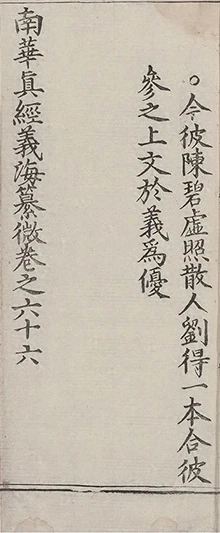 ○今彼陳碧虛照散人劉得一本合彼
參之上文於義爲優
南華眞經義海纂微卷之六十六